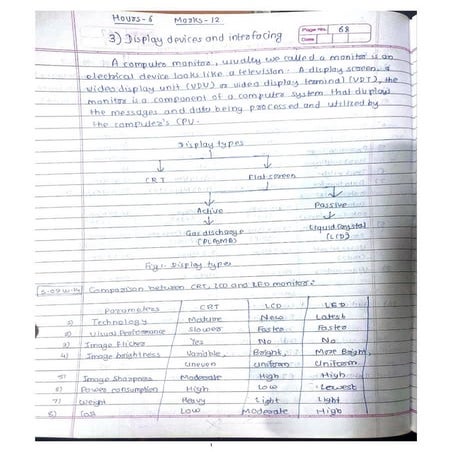 Hours-6 Marks-12
Page No. 68
Date
3) Display devices and interfacing
A computer monitor, usually we called a monitor is an
electrical device looks like a television. A display screen, a
video display unit (VDU) or video display terminal (VDT), the
monitor is a component of a computer system that displays
the messages and data being processed and utilized by
the computer's CPU.
Display types
CRT Flat screen
Active Passive
Gas discharge Liquid Crystal
(PLASMA) (LCD)
Fig:- Display types
Comparison between CRT, LCD and LED monitor:
Parameters CRT LCD LED
1) Technology Mature New Latest
2) Visual Performance Slower Faster Faster
3) Image Flicker Yes No No
4) Image brightness Variable, Bright, More Bright,
Uneven Uniform Uniform
5) Image Sharpness Moderate High High
6) Power consumption High Low Lowest
7) Weight Heavy Light Light
8) Cost Low Moderate High